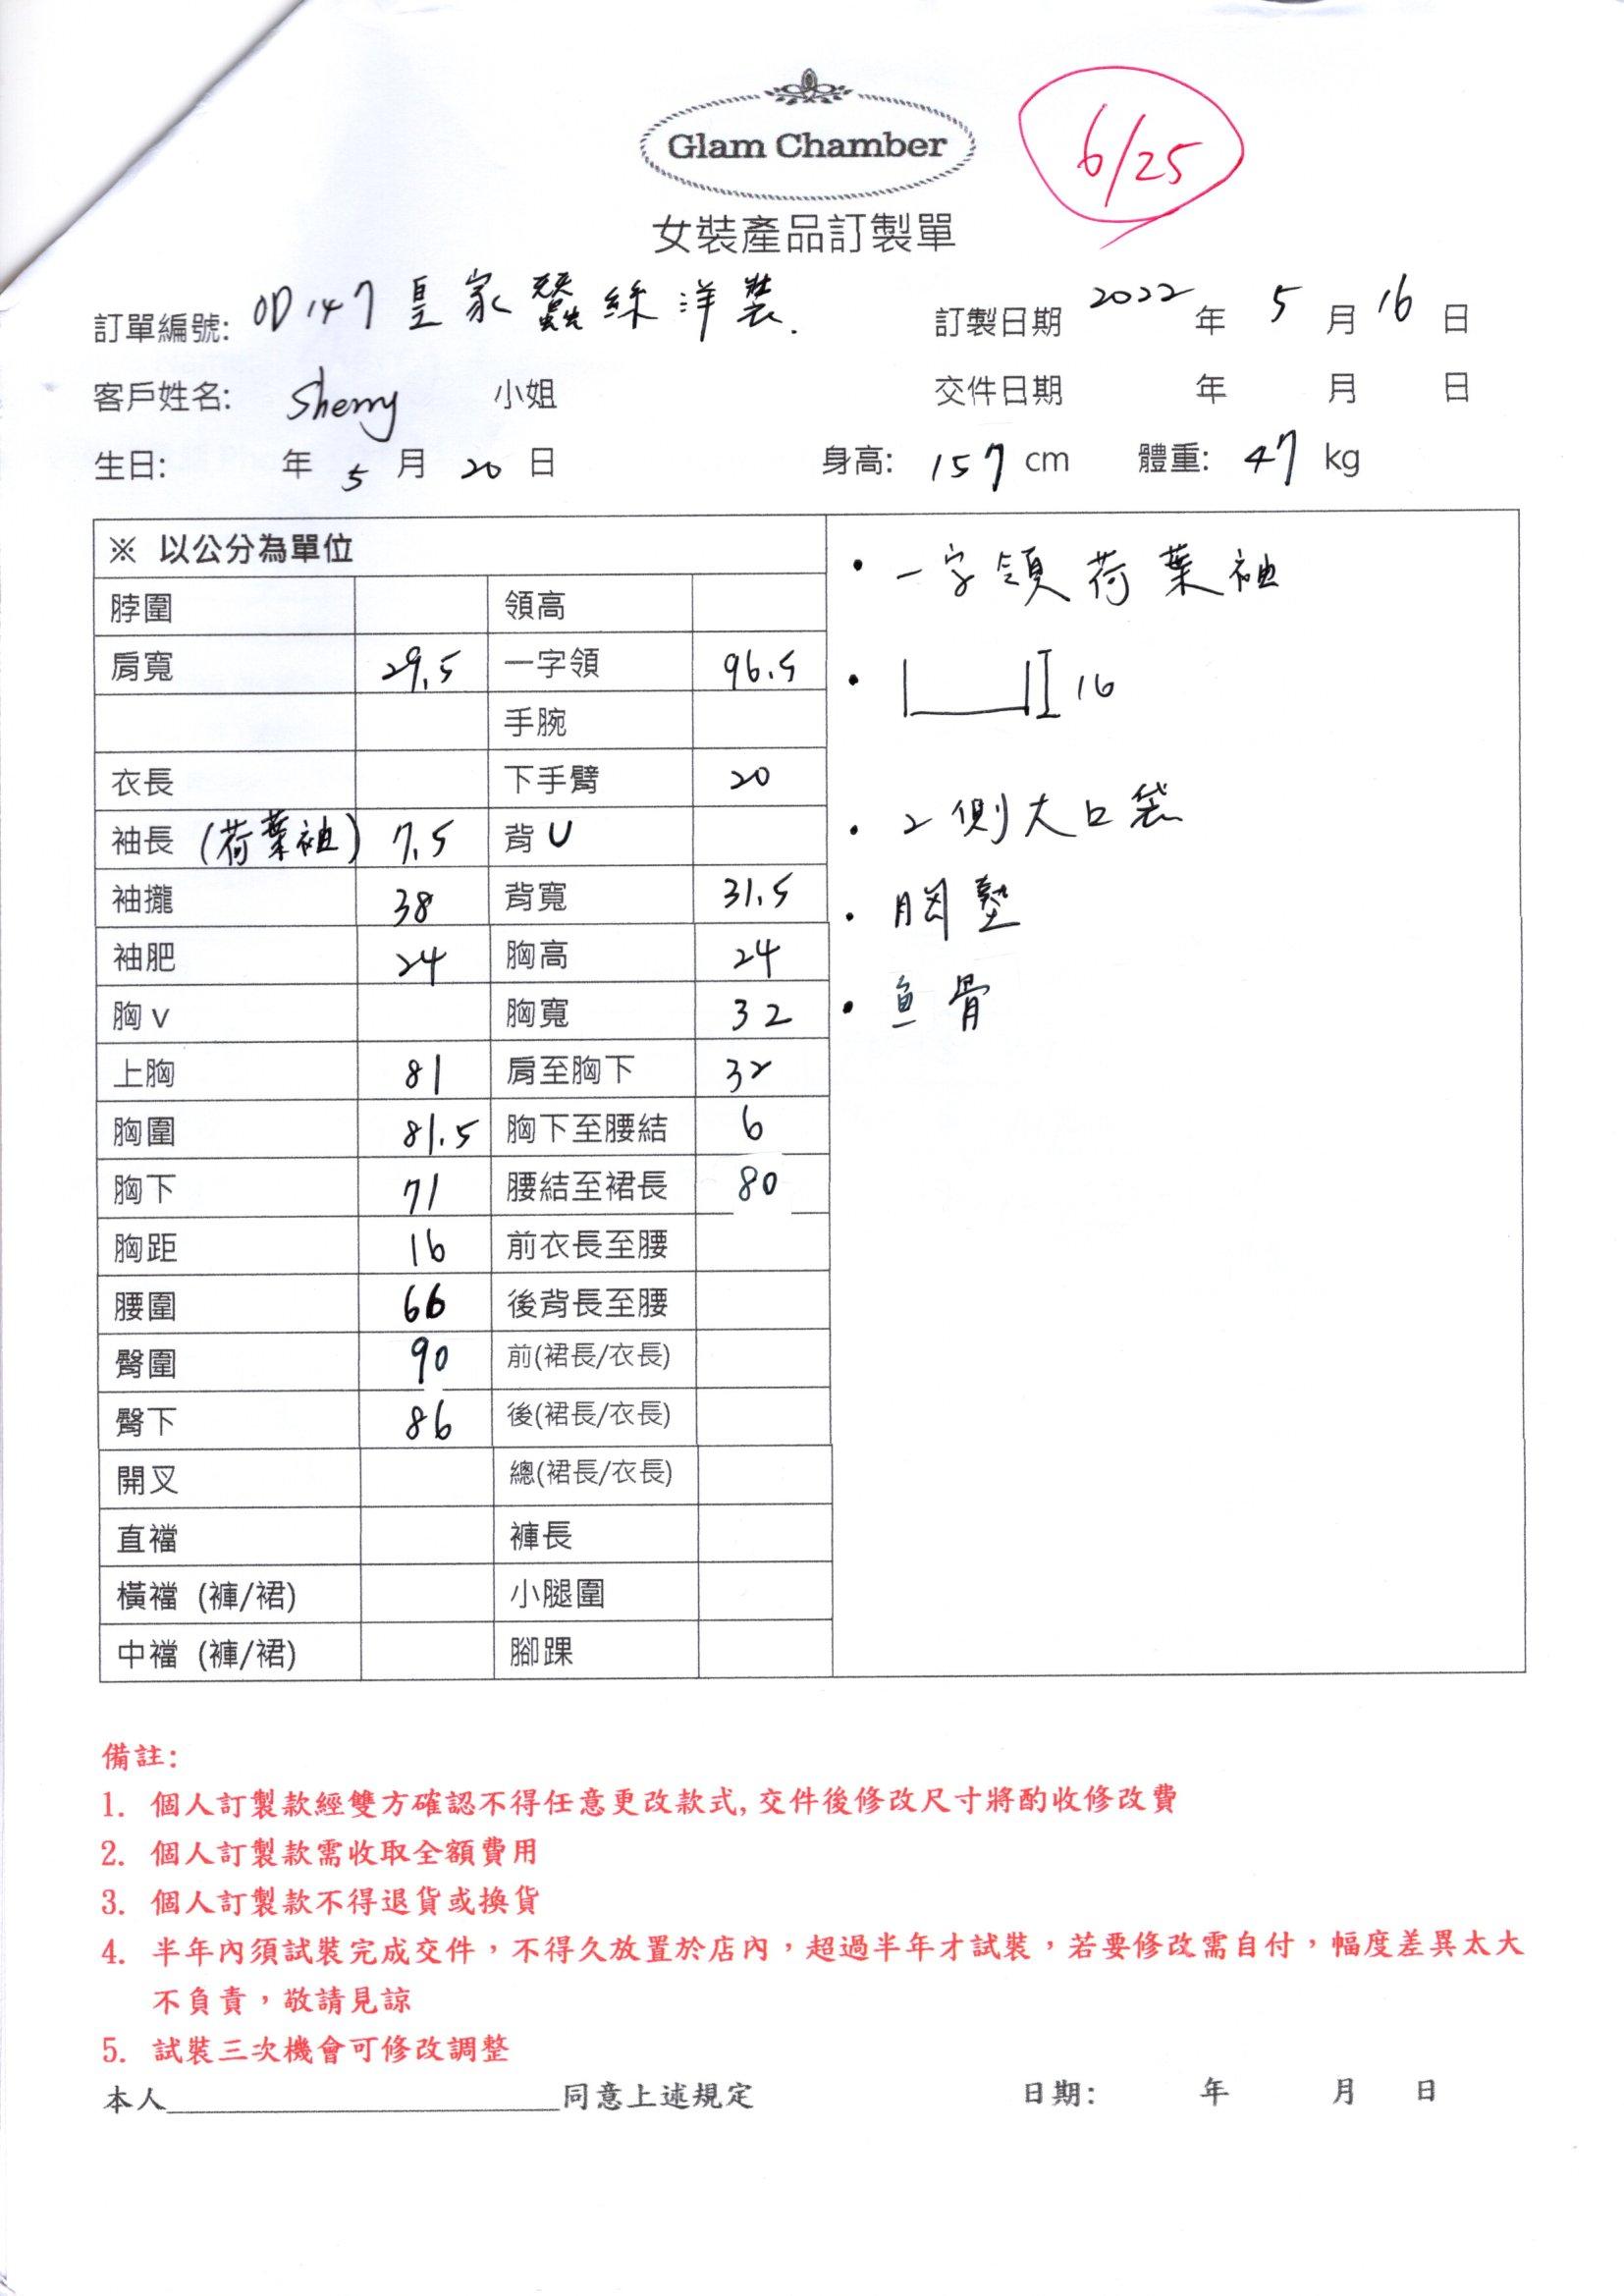 Glam Chamber
6/25
女裝產品訂製單
訂單編號: OD147皇家蠶絲洋裝. 訂製日期 2022 年 5 月 16 日
客戶姓名: Sherry 小姐 交件日期 年 月 日
生日: 年 5 月 20 日 身高: 157 cm 體重: 47 kg
※ 以公分為單位
脖圍 領高
肩寬 29.5 一字領 96.5
手腕
衣長 下手臂 20
袖長 (荷葉袖) 7.5 背U
袖攏 38 背寬 31.5
袖肥 24 胸高 24
胸v 胸寬 32
上胸 81 肩至胸下 32
胸圍 81.5 胸下至腰結 6
胸下 71 腰結至裙長 80
胸距 16 前衣長至腰
腰圍 66 後背長至腰
臀圍 90 前(裙長/衣長)
臀下 86 後(裙長/衣長)
開叉 總(裙長/衣長)
直襠 褲長
橫襠 (褲/裙) 小腿圍
中襠 (褲/裙) 腳踝
• 一字領荷葉袖
• 16
• 2側大口袋
• 胸墊
• 魚骨
備註:
1. 個人訂製款經雙方確認不得任意更改款式, 交件後修改尺寸將酌收修改費
2. 個人訂製款需收取全額費用
3. 個人訂製款不得退貨或換貨
4. 半年內須試裝完成交件，不得久放置於店內，超過半年才試裝，若要修改需自付，幅度差異太大
不負責，敬請見諒
5. 試裝三次機會可修改調整
本人________________________同意上述規定 日期: 年 月 日